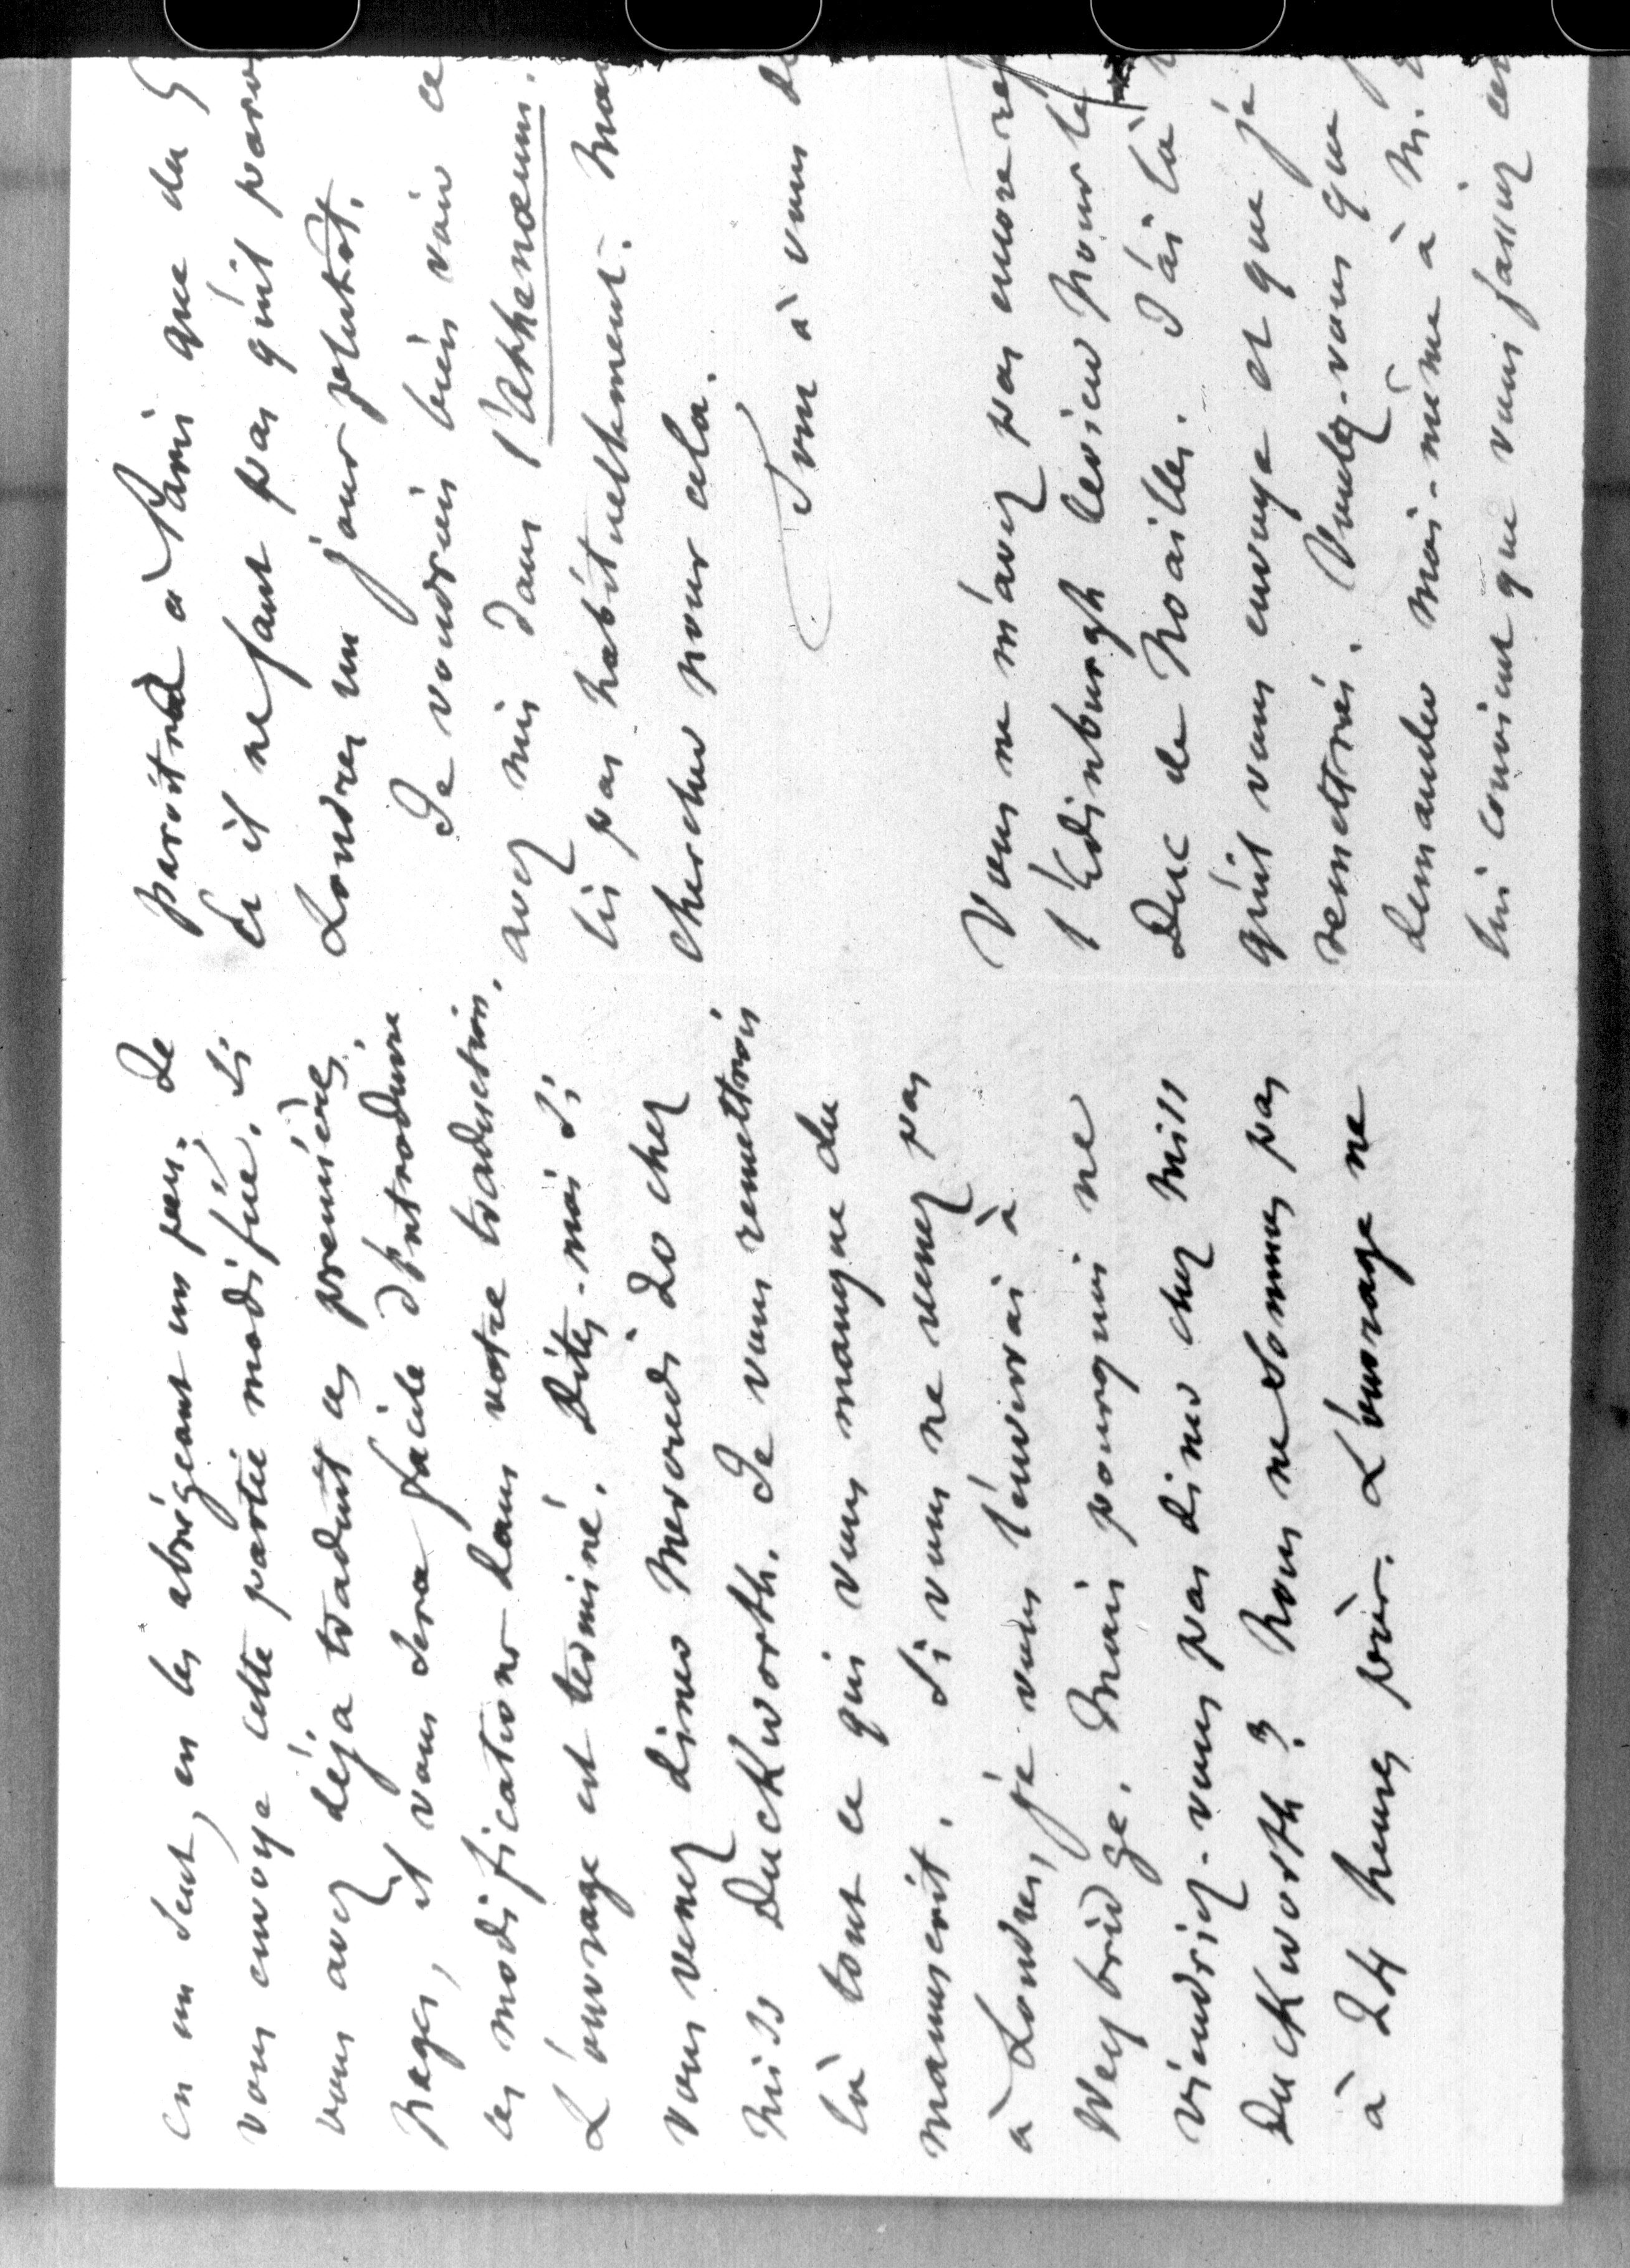 en un seul, en les abrégeant un peu. Je
vous envoye cette partie modifiée. Si
vous avez déja traduit ces premières
pages, il vous sera facile d'introduire
les modifications dans votre traduction.
L'ouvrage est terminé. Dites-moi si
vous venez diner Mercredi 20 chez
Miss Duckworth. Je vous remettrois
là tout ce qui vous manque du
manuscrit. Si vous ne venez pas
à Londres, je vous l'enverrai à
Weybridge. Mais pourquoi ne
viendriez-vous pas diner chez Miss
Duckworth? Nous ne sommes pas
à 24 heures près. L'ouvrage ne
paroîtra à Paris que du
et il ne faut pas qu'il paro
Londres un jour plutot.
Je voudrois bien voir ce
avez mis dans l'Athenæum.
lis pas habituellement. Mai
chercher pour cela.
Tout à vous
Vous ne m'avez pas encore
l'Edinburgh Review pour le
Duc de Noailles. J'ai là
qu'il vous envoye et que je
remettrai. Voulez-vous que
demander moi-même à M.
lui convient que vous fassiez